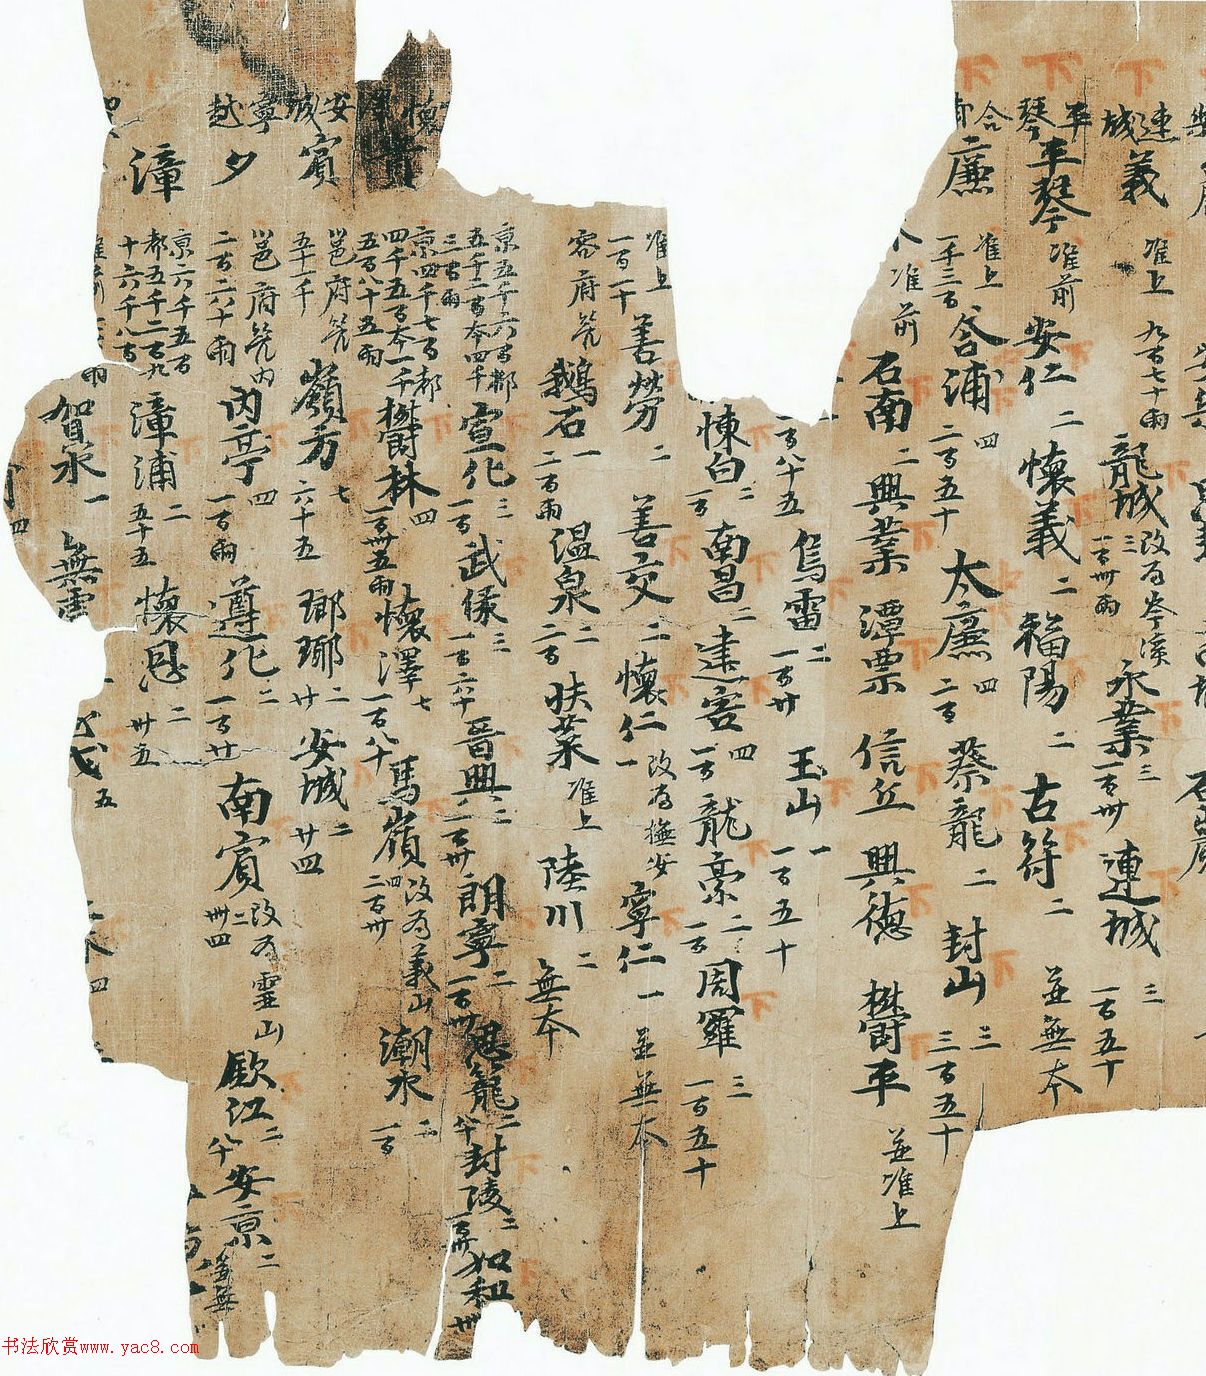 連城 義 准上 九百七十兩 龍城 三 改為岑溪 一百卌兩 永業 三 一百卌 連城 三 一百五十
平琴 平琴 准前 安仁 二 懷義 二 福陽 二 古符 二 並無本
合 廉 准上 一千三百 合浦 四 二百五十 太廉 四 二百 蔡龍 二 封山 三 三百五十
准前 石南 二 興業 潭票 信丘 興德 欝平 並准上
百八十五 烏雷 二 一百廿 玉山 一 一百五十
悚白 二 一百 南昌 二 建寧 四 一百 龍豪 二 一百 周羅 三 一百五十
准上 一百一十 善勞 二 善文 二 懷仁 一 改為撫安 寧仁 一 並無本
容府管 鵝石 一 二百兩 温泉 二 二百 扶萊 准上 陸川 二 無本
京五千六百 都五千二百 本四千三百兩 宣化 三 一百 武緣 三 一百六十 晉興 二 一百卌 朗寧 二 一百卌 思籠 二 八十 封陵 二 一百卅 如和 卅
懷澤 京四千七百 都四千五百 本一千五百八十五兩 欝林 四 一百卅五兩 懷澤 七 一百八十 馬嶺 四 改為義山 二百卅 潮水 二 一百
安城 賓 邕府管 五十一千 嶺方 七 六十五 瑯瑘 二 廿 安城 二 廿四
寧越 邕府管內 二百六十兩 內亭 四 一百兩 遵化 二 一百廿 南賓 二 改為靈山 卌四 欽江 二 八十 安京 二 並無
漳 京六千五百 都五千二百九十 六千八百 漳浦 二 五十五 懷恩 二 卅五
准前 兩 賀水 一 無虞
四 五 本 四
下 下 下 下 下
书法欣赏www.yac8.com